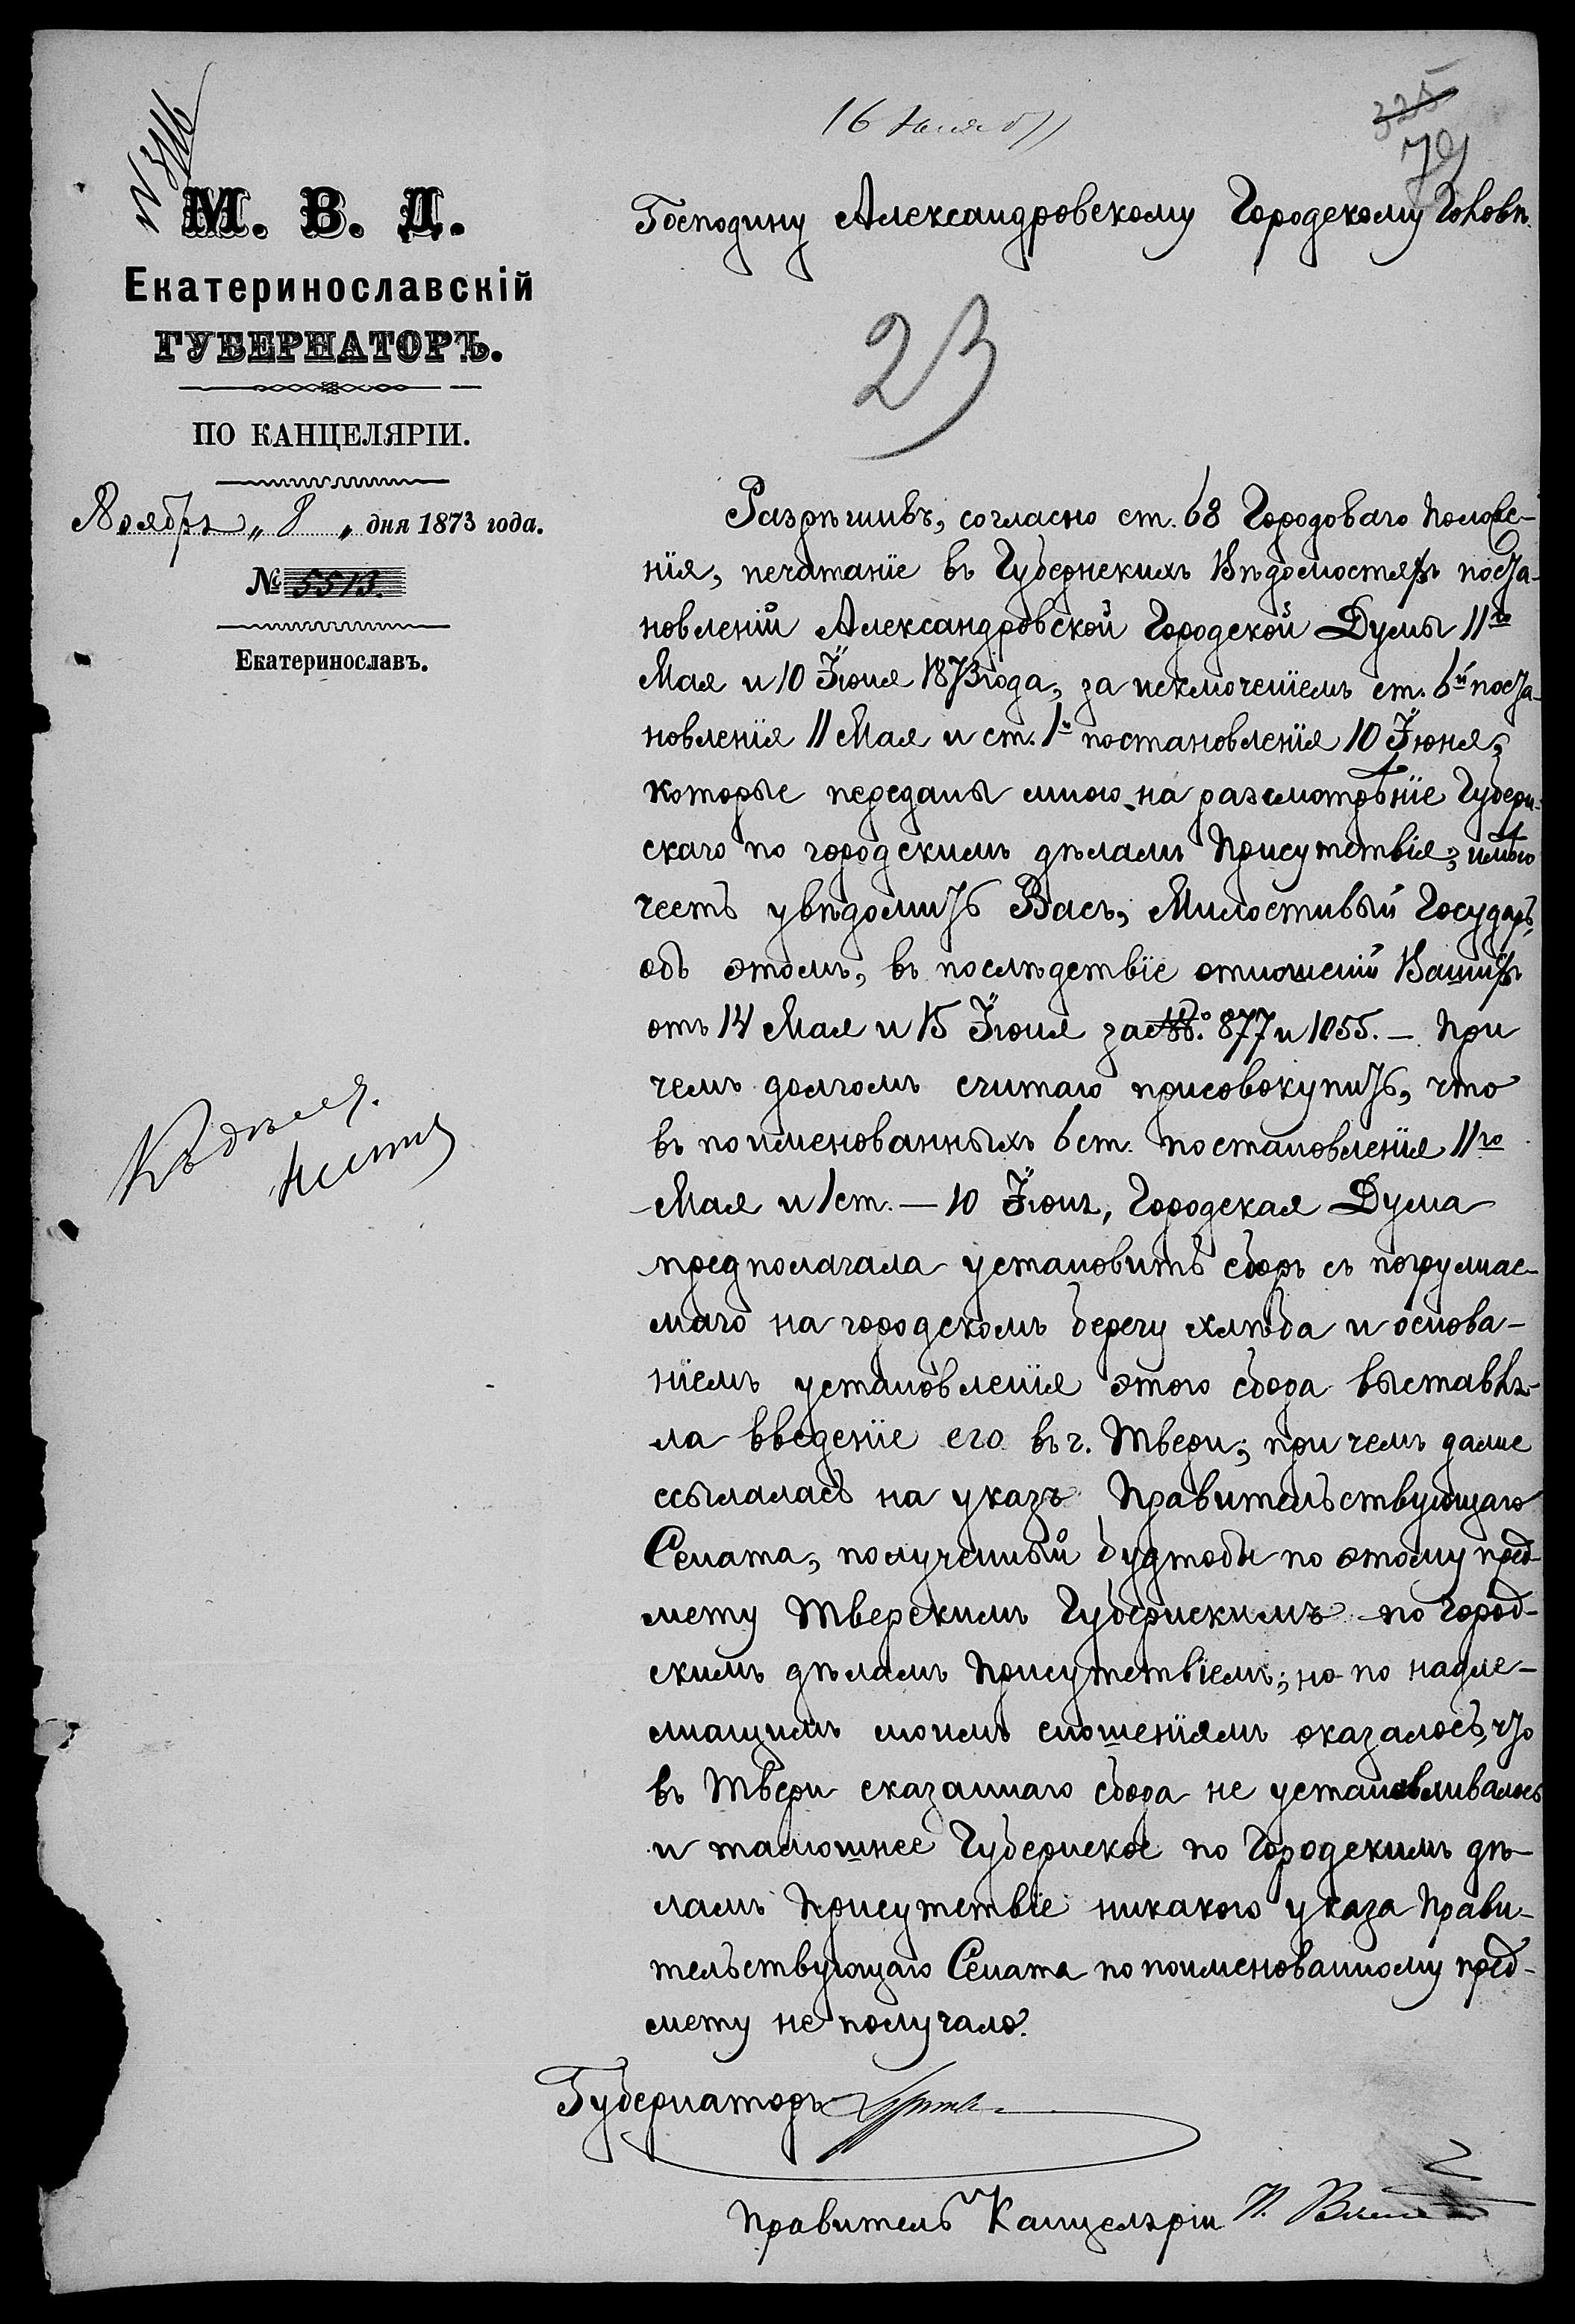 16 Ноября
325
79
М. В. Д.
Екатеринославскій
ГУБЕРНАТОРЪ.
ПО КАНЦЕЛЯРІИ.
Ноября „ 8 „ дня 1873 года.
№ 5513.
Екатеринославъ.
Господину Александровскому Городскому Головѣ.
23
Разрѣшивъ, согласно ст. 68 Городоваго Положе-
нія, печатаніе въ Губернскихъ Вѣдомостяхъ поста-
новленій Александровской Городской Думы 11го
Мая и 10 Іюня 1873 года, за исключеніемъ ст. 6й поста-
новленія 11 Мая и ст. 1й постановленія 10 Іюня,
которые переданы мною на разсмотрѣніе Губерн-
скаго по городскимъ дѣламъ Присутствія, имѣю
честь увѣдомить Васъ, Милостивый Государь,
объ этомъ, въ послѣдствіе отношеній Вашихъ
отъ 14 Мая и 15 Іюня за №№ 877 и 1055. — При
чемъ долгомъ считаю присовокупить, что
въ поименованныхъ 6 ст. постановленія 11го
Мая и 1 ст. — 10 Іюня, Городская Дума
предполагала установить сборъ съ погружае-
маго на городскомъ берегу хлѣба и основа-
ніемъ установленія этого сбора выставля-
ла введеніе его въ г. Твери; при чемъ даже
ссылалась на указъ Правительствующаго
Сената, полученный будтобы по этому пред-
мету Тверскимъ Губернскимъ по город-
скимъ дѣламъ Присутствіемъ; но по надле-
жащимъ моимъ сношеніямъ оказалось, что
въ Твери сказаннаго сбора не установливалось
и тамошнее Губернское по Городскимъ дѣ-
ламъ Присутствіе никакого указа Прави-
тельствующаго Сената по поименованному пред-
мету не получало.
Къ дѣлу.
Губернаторъ
Правитель Канцеляріи